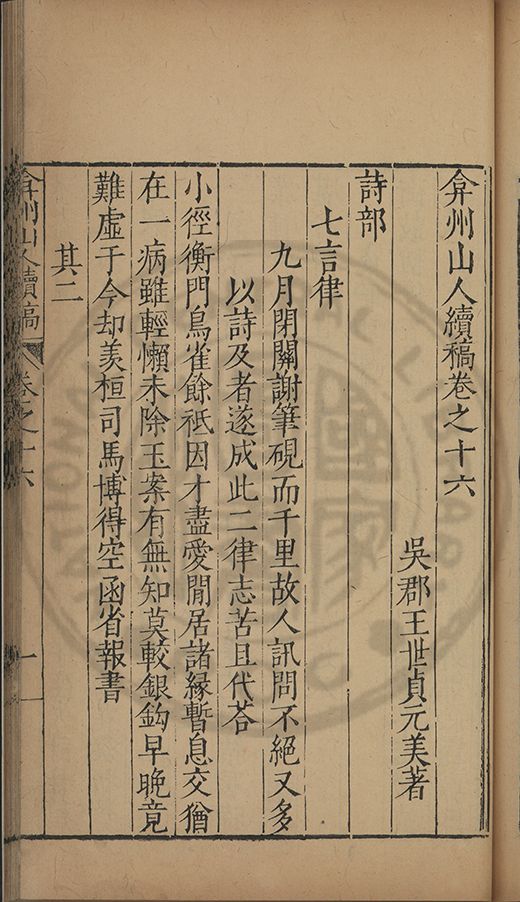 弇州山人續稿卷之十六
吳郡王世貞元美著
詩部
七言律
九月閉關謝筆硯而千里故人訊問不絕又多
以詩及者遂成此二律志苦且代荅
小徑衡門鳥雀餘祗因才盡愛閒居諸緣暫息交猶
在一病雖輕懶未除玉案有無知莫較銀鈎早晚竟
難虛于今却羨桓司馬博得空函省報書
其二
弇州山人續稿 卷之十六 一